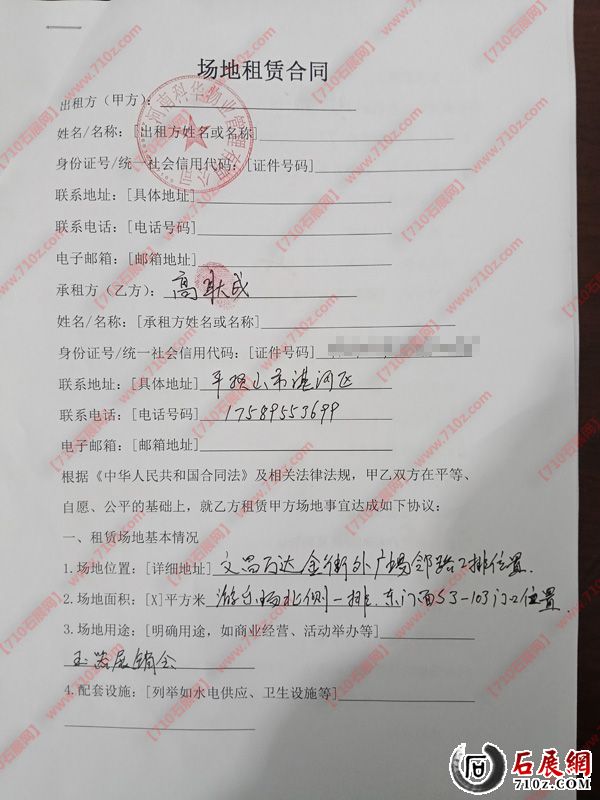 场地租赁合同
出租方（甲方）：
姓名/名称：[出租方姓名或名称]
身份证号/统一社会信用代码：[证件号码]
联系地址：[具体地址]
联系电话：[电话号码]
电子邮箱：[邮箱地址]
承租方（乙方）：高耿成
姓名/名称：[承租方姓名或名称]
身份证号/统一社会信用代码：[证件号码]
联系地址：[具体地址] 平顶山市湛河区
联系电话：[电话号码] 17589553699
电子邮箱：[邮箱地址]
根据《中华人民共和国合同法》及相关法律法规，甲乙双方在平等、
自愿、公平的基础上，就乙方租赁甲方场地事宜达成如下协议：
一、租赁场地基本情况
1.场地位置：[详细地址] 文昌万达金街外广场邻路2排位置
2.场地面积：[X]平方米 游乐场北侧一排.东门面53-103门口位置
3.场地用途：[明确用途，如商业经营、活动举办等]
玉器展销会
4.配套设施：[列举如水电供应、卫生设施等]
【710石展网】
www.710z.com
石展網
710z.com